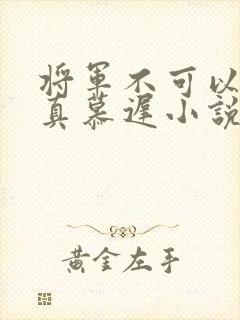 将軍不可以
真慕遲小說
黃金左手